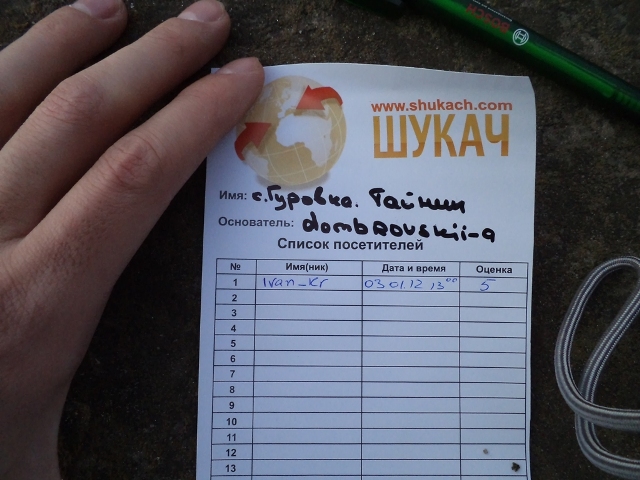 BOSCH
www.shukach.com
ШУКАЧ
Имя: с. Гуровка. Тайник
Основатель: dombrovskii-a
Список посетителей
№ Имя(ник) Дата и время Оценка
1 Ivan_Kr 03 01.12 13⁰⁰ 5
2
3
4
5
6
7
8
9
10
11
12
13